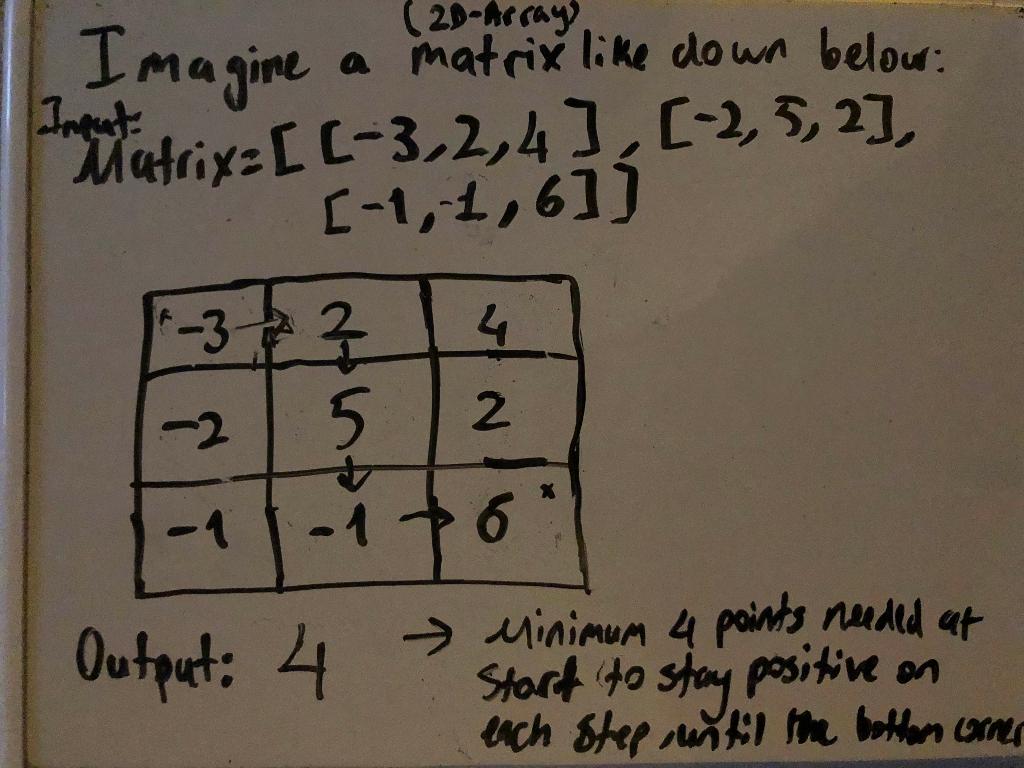 (2D-Array)
Imagine a matrix like down below:
Input:
Matrix=[[-3,2,4], [-2,5,2],
[-1,-1,6]]
-3 → 2 4
↓
-2 5 2
↓
-1 -1 → 6 x
Output: 4 → Minimum 4 points needed at
start to stay positive on
each step, until the bottom corner